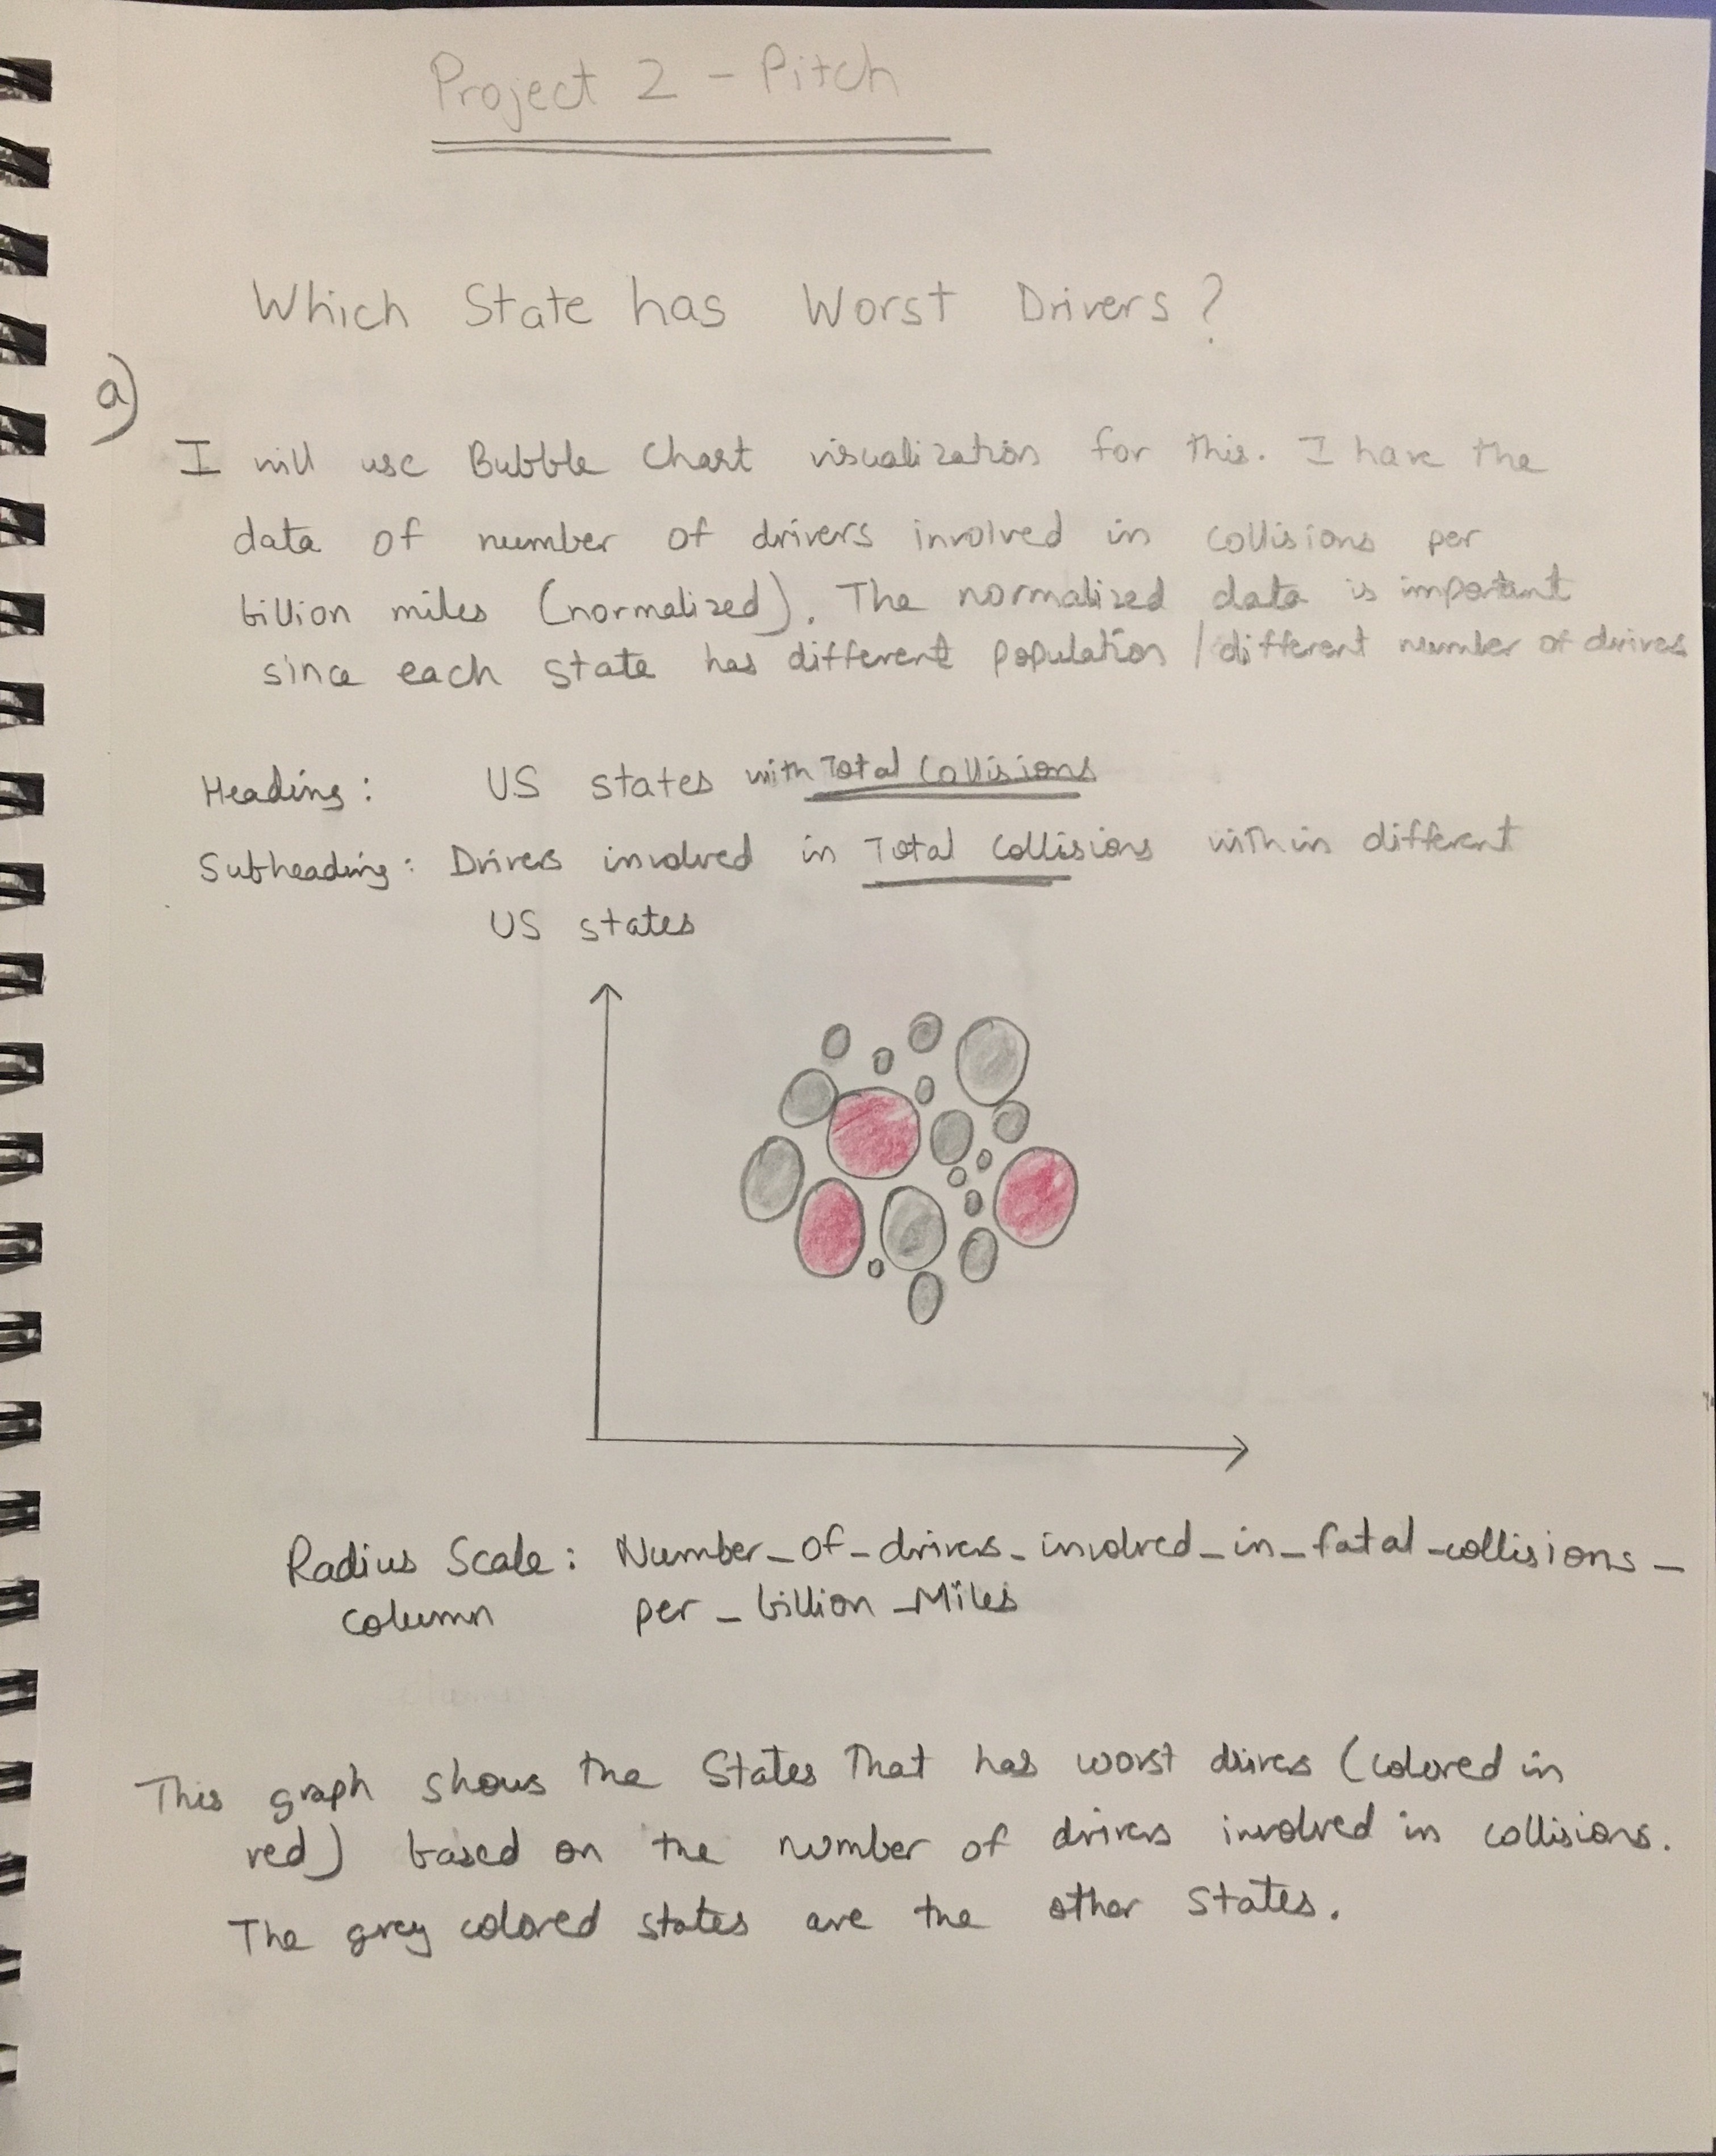 Project 2 - Pitch
Which State has Worst Drivers?
a)
I will use Bubble Chart visualization for this. I have the
data of number of drivers involved in collisions per
billion miles (normalized). The normalized data is important
since each state has different population / different number of drivers
Heading: US states with Total Collisions
Subheading: Drivers involved in Total Collisions within different
US states
Radius Scale: Number_of_drivers_involved_in_fatal_collisions_
column per_billion_Miles
This graph shows the States That has worst drivers (colored in
red) based on the number of drivers involved in collisions.
The grey colored states are the other states.